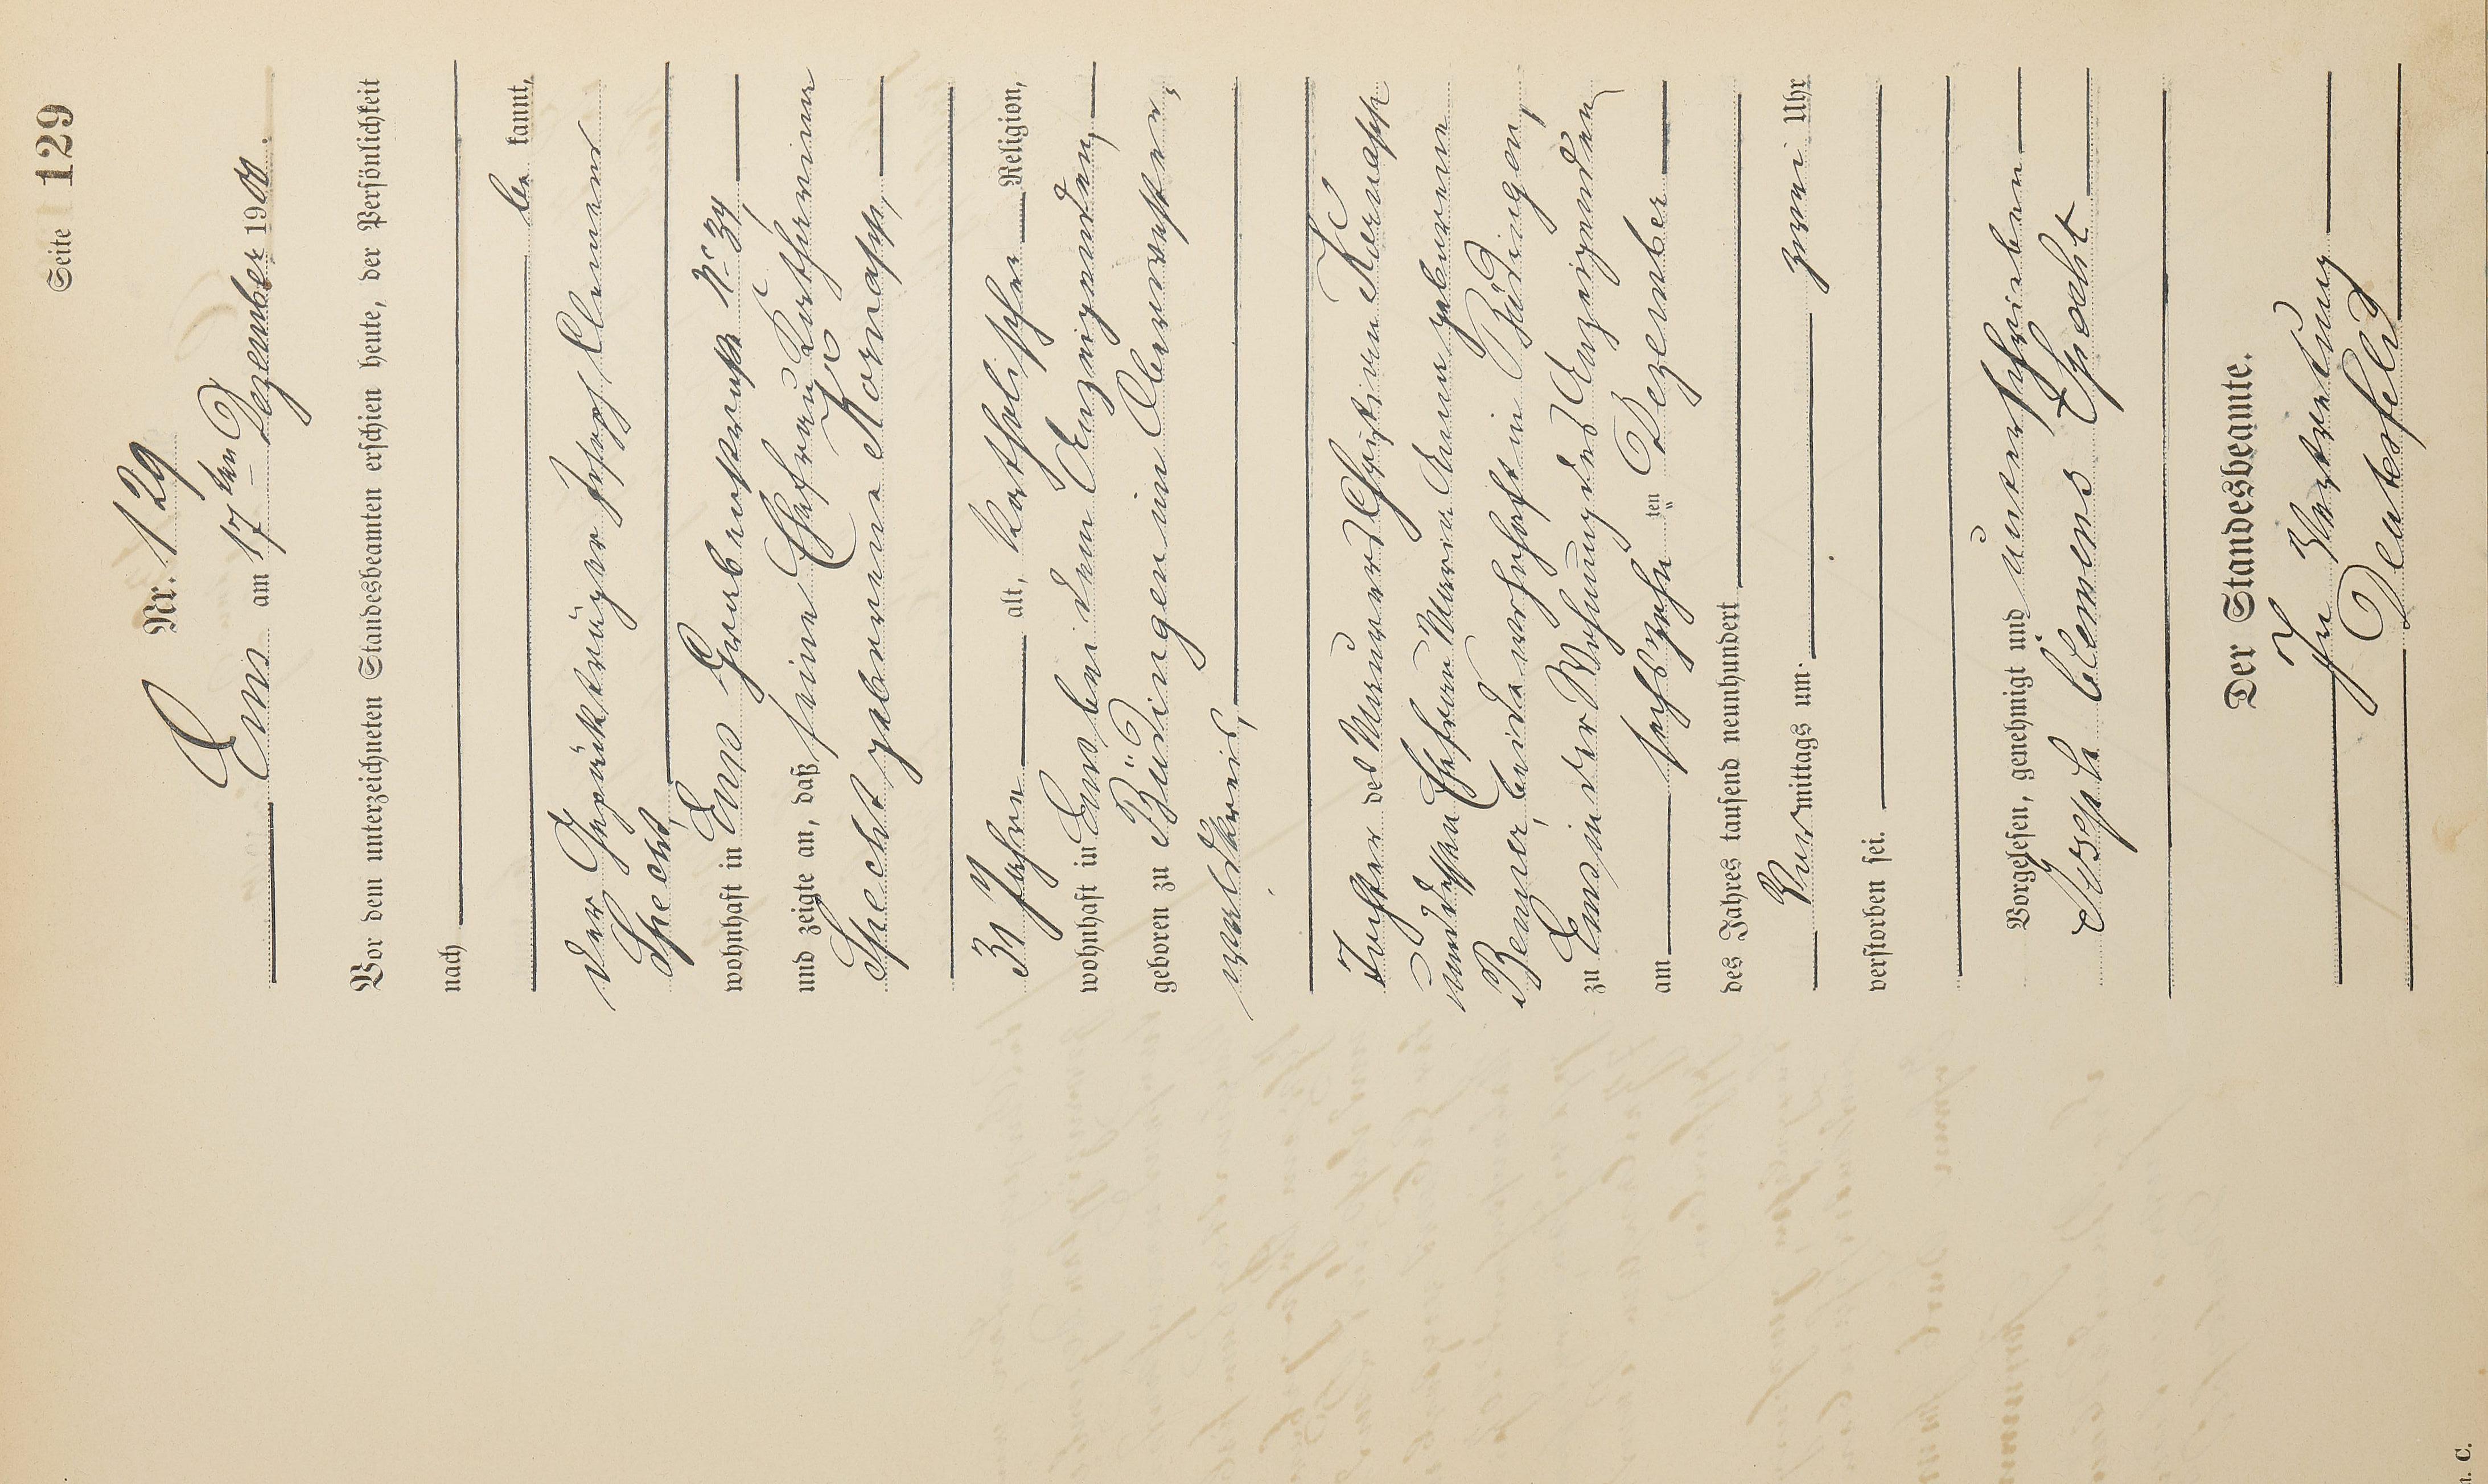 Seite 129
Nr. 129
Ems am 17ten Dezember 1900.
Vor dem unterzeichneten Standesbeamten erschien heute, der Persönlichkeit
nach
be kannt,
der Gepäckträger Joseph Clemens
Specht,
wohnhaft in Ems Grabenstraße No 34,
und zeigte an, daß seine Ehefrau Katharina
Specht geborene Kornapp,
31 Jahre alt, katholischer Religion,
wohnhaft in Ems bei dem Anzeigenden,
geboren zu Büdingen im Oberwester,
waldkreis,
Tochter des Maurers Christian Kornapp
und dessen Ehefrau Maria Anna geborene
Benner, beide wohnhaft in Büdingen,
zu Ems in der Wohnung des Anzeigenden
am sechszehn ten Dezember
des Jahres tausend neunhundert
Vor mittags um zwei Uhr
verstorben sei.
Vorgelesen, genehmigt und unterschrieben
Joseph Clemens Specht
Der Standesbeamte.
In Vertretung
C.